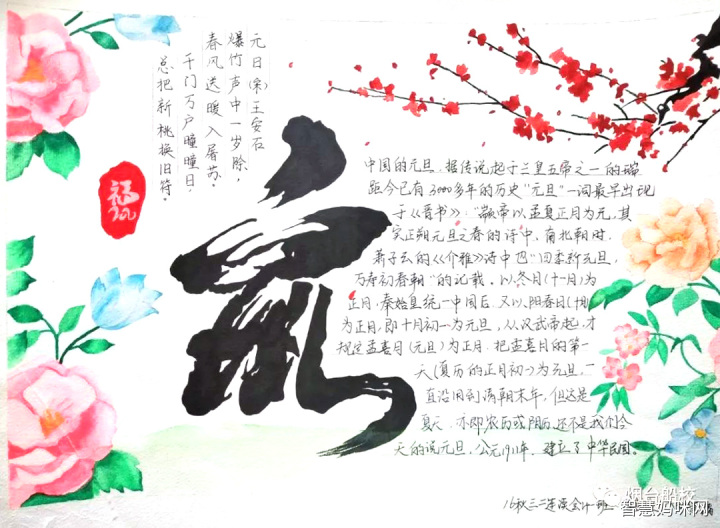 元日(宋)王安石
爆竹声中一岁除，
春风送暖入屠苏。
千门万户曈曈日，
总把新桃换旧符。
福
鼠
中国的元旦，据传说起于三皇五帝之一的
距今已有3000多年的历史"元旦"一词最早出现
于《晋书》："颛帝以孟夏正月为元，其
实正朔元旦之春的诗中。南北朝时，
萧子云的《介雅》诗中也"四季新元旦，
万寿初春朝"的记载。以冬月(十一月)为
正月，秦始皇统一中国后，又以阳春月(十月)
为正月，即十月初一为元旦，从汉武帝起，才
规定孟喜月(元旦)为正月，把孟喜月的第一
天(夏历的正月初一)为元旦，一
直沿用到清朝末年，但这是
夏，亦即农历或阴历，还不是我们今
天的说元旦，公元1911年，建立了中华民国。
16秋三二连读会计一班
烟台船校
智慧妈咪网